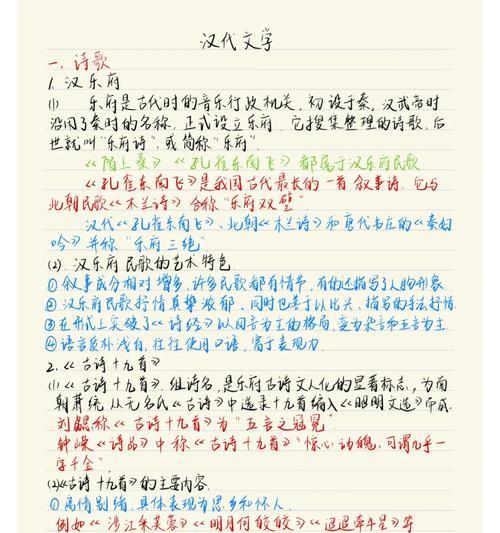 汉代文学
一、诗歌
1. 汉乐府
(1) 乐府是古代时的音乐行政机关，初设于秦，汉武帝时
沿用了秦时的名称，正式设立乐府。它搜集整理的诗歌，后
世就叫“乐府诗”，或简称“乐府”。
《陌上桑》《孔雀东南飞》都属于汉乐府民歌
《孔雀东南飞》是我国古代最长的一首叙事诗，它与
北朝民歌《木兰诗》合称“乐府双璧”
汉代《孔雀东南飞》、北朝《木兰诗》和唐代韦庄的《秦妇
吟》并称“乐府三绝”
(2). 汉乐府民歌的艺术特色
①叙事成分相对增多，许多民歌都有情节，有的还描写了人物形象
②汉乐府民歌抒情真挚浓郁，同时也善于以比兴、描写的手法抒情
③在形式上突破了《诗经》以四言为主的格局，变为杂言和五言为主
④语言质朴浅白，往往使用口语，富于表现力.
2.《古诗十九首》
(1)《古诗十九首》，组诗名，是乐府古诗文人化的显著标志，为南
朝萧统从无名氏《古诗》中选录十九首编入《昭明文选》而成.
刘勰称《古诗十九首》为“五言之冠冕”
钟嵘《诗品》中称《古诗十九首》“惊心动魄，可谓几乎一
字千金”
(2)《古诗十九首》的主要内容.
①离情别绪，具体表现为思乡和怀人.
例如《涉江采芙蓉》《明月何皎皎》《迢迢牵牛星》等